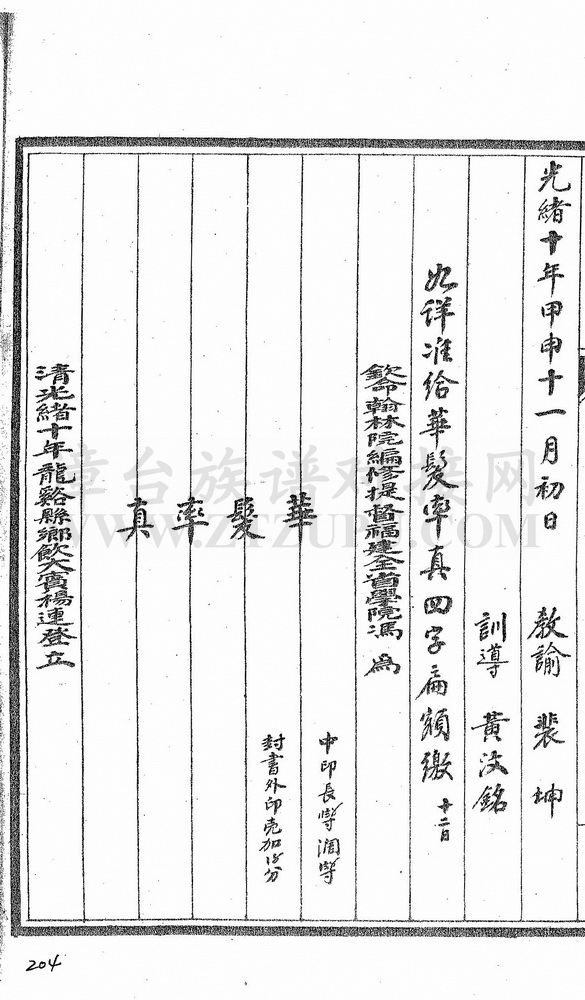 光緒十年甲申十一月初日　教諭　裴坤
訓導　黃汝銘
如詳准給華髮率真四字匾額繳　廿二日
欽命翰林院編修提督福建全省學院馮　為
中印長　濶
華髮率真
封書外印壳加　分
清光緒十年龍谿縣鄉飲大賓楊連登立
漳台族谱对接网
WWW.ZTZUPU.COM
204